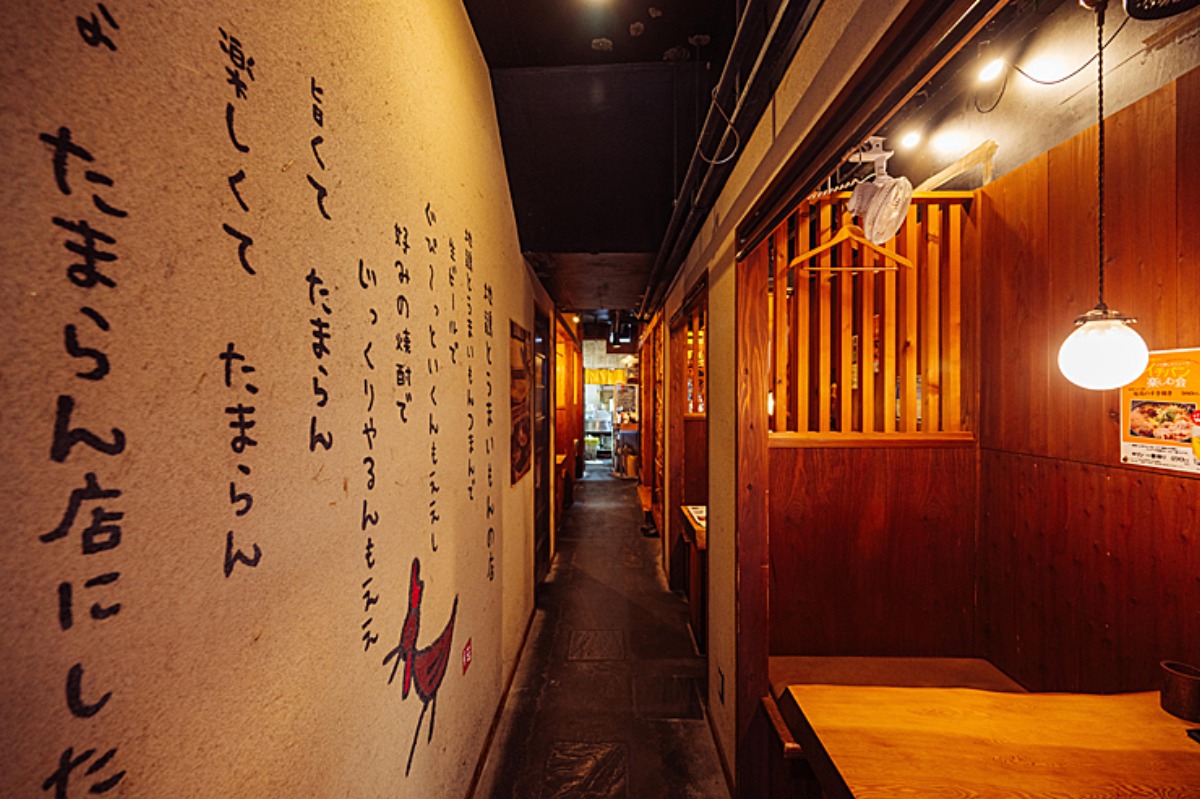 地鶏とうまいもんの店
地鶏とうまいもんつまんで
生ビールで
ぐび〜っといくんもええし
好みの焼酎で
じっくりやるんもええ
旨くて たまらん
楽しくて たまらん
たまらん店にした
楽しむ会